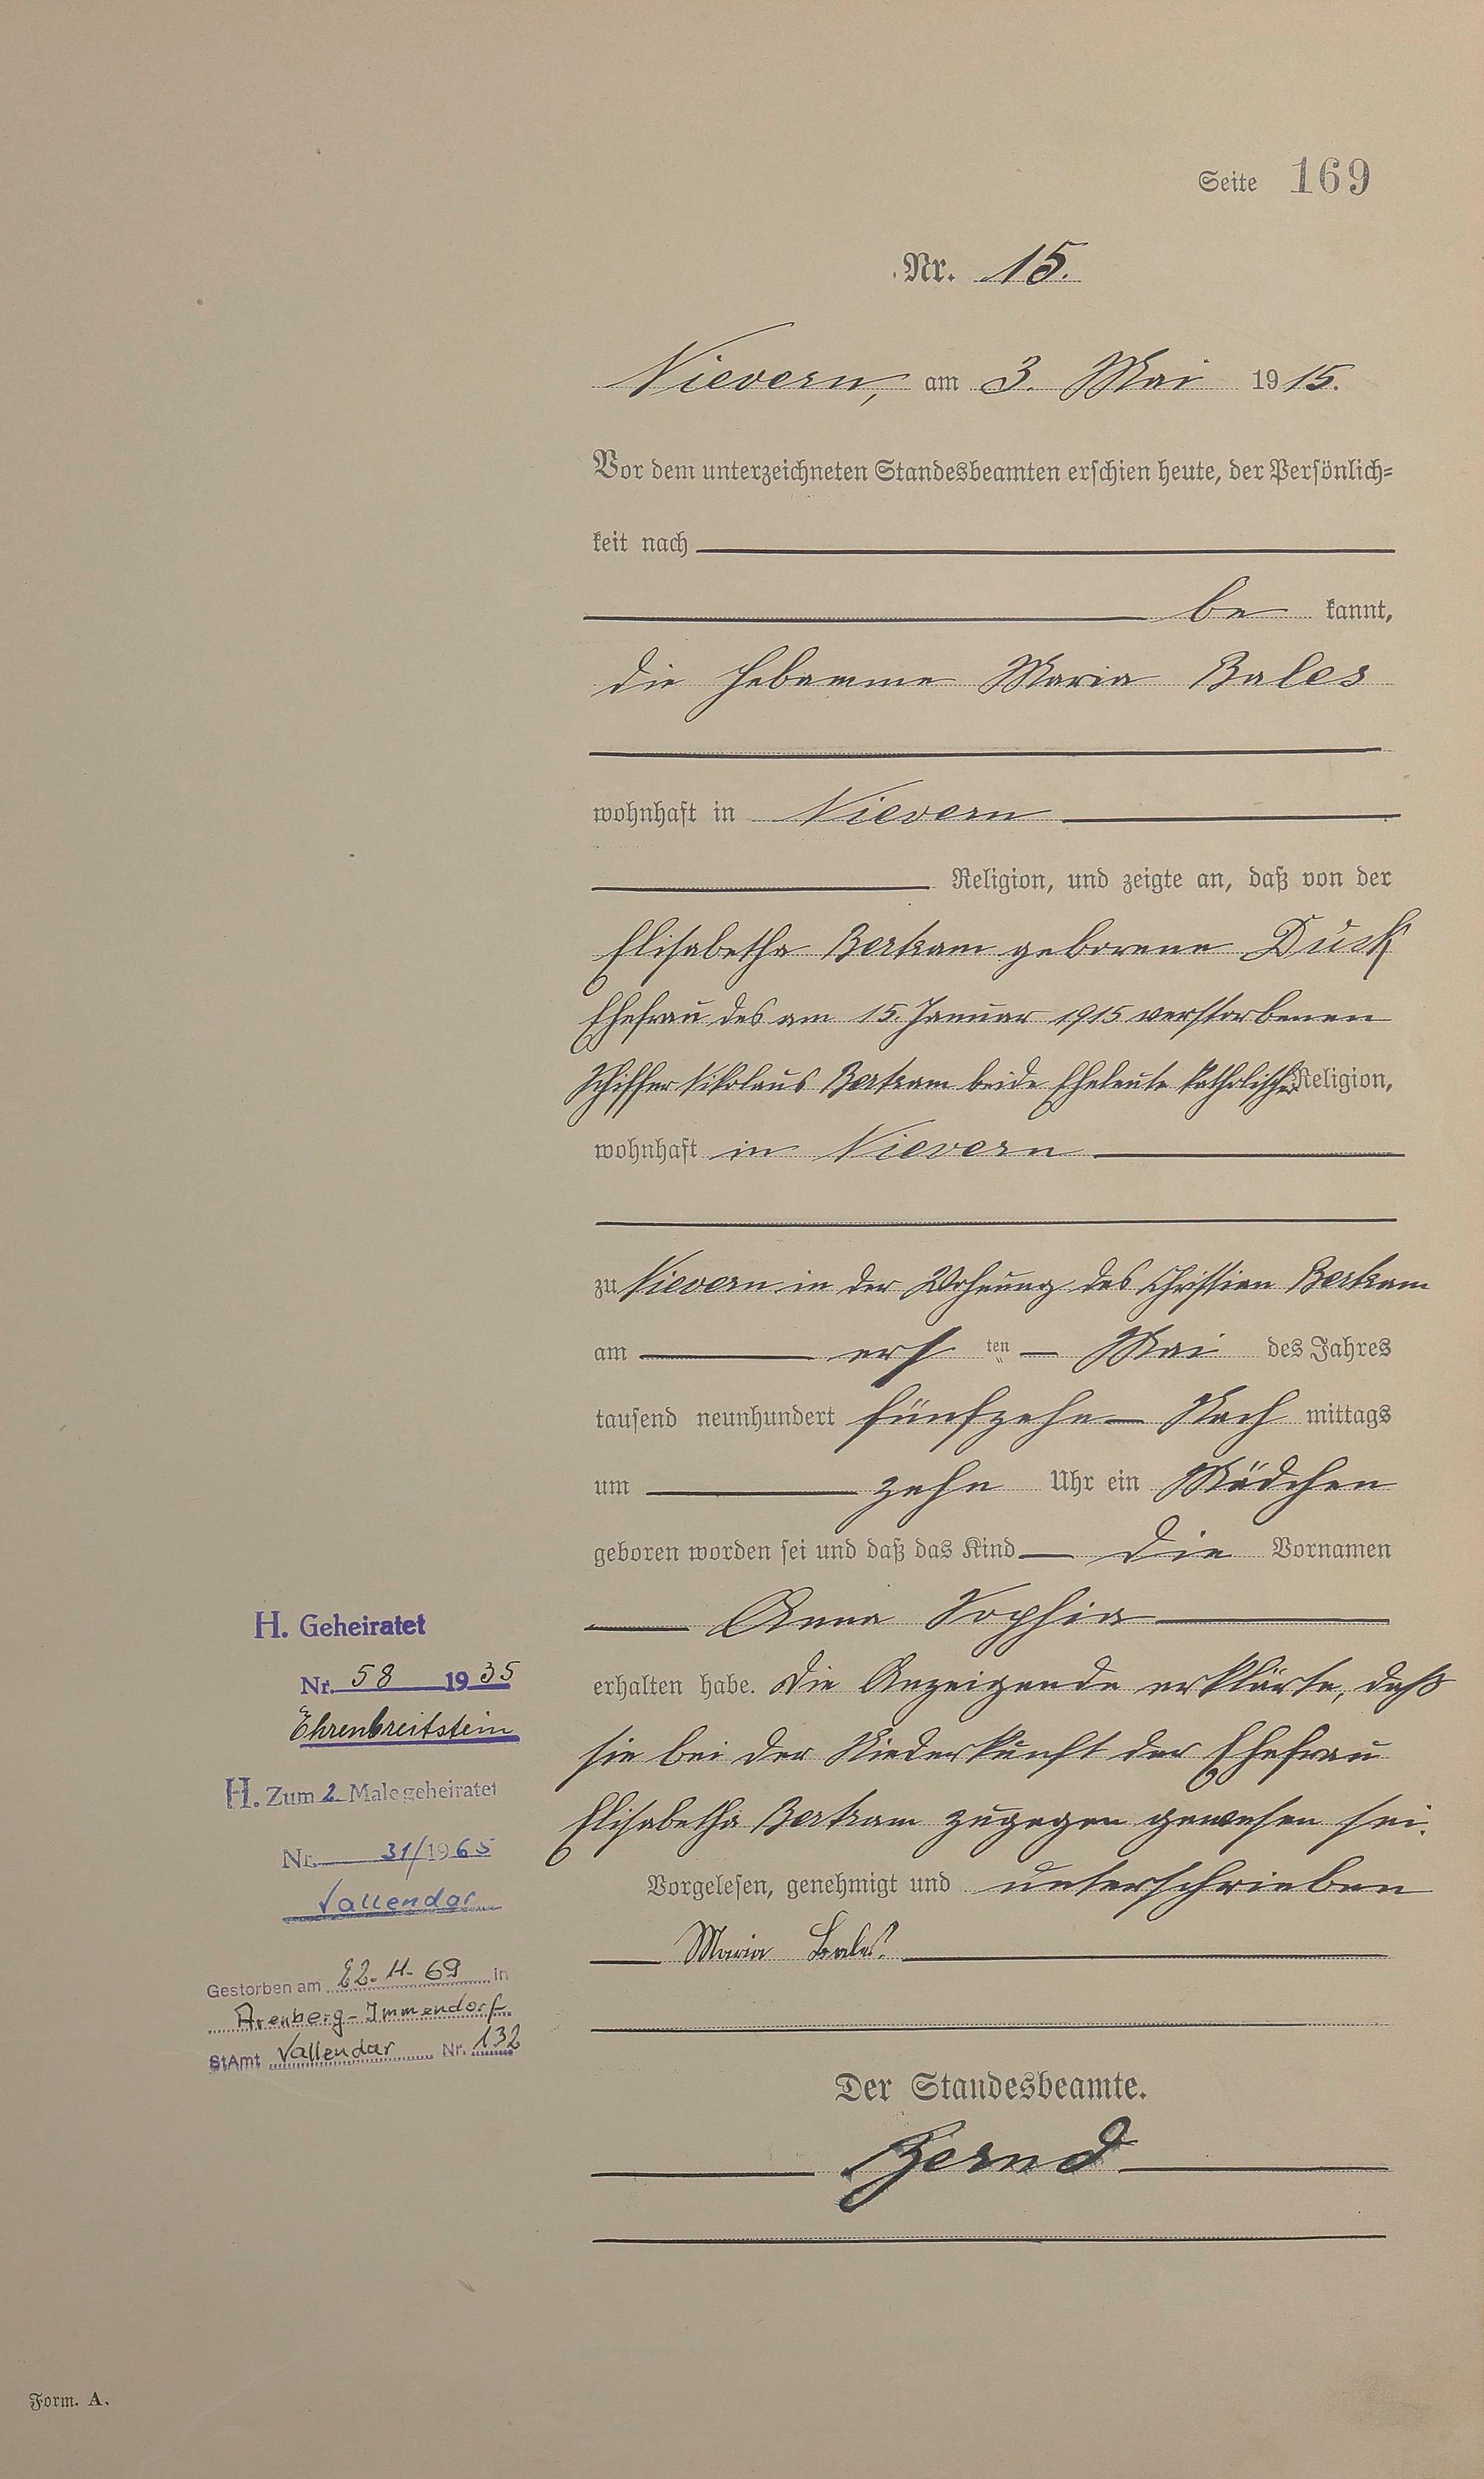 Seite 169
Nr. 15.
Nievern, am 3. Mai 1915.
Vor dem unterzeichneten Standesbeamten erschien heute, der Persönlich-
keit nach
be kannt,
die Hebamme Maria Bales
wohnhaft in Nievern
Religion, und zeigte an, daß von der
Elisabetha Bertram geborene Duck
Ehefrau des am 15. Januar 1915 verstorbenen
Schiffer Nikolaus Bertram beide Eheleute katholischer Religion,
wohnhaft in Nievern
zu Nievern in der Wohnung des Christian Bertram
am ersten Mai des Jahres
tausend neunhundert fünfzehn Nach mittags
um zehn Uhr ein Mädchen
geboren worden sei und daß das Kind die Vornamen
Anna Sophia
erhalten habe. Die Anzeigende erklärte, daß
sie bei der Niederkunft der Ehefrau
Elisabetha Bertram zugegen gewesen sei.
Vorgelesen, genehmigt und unterschrieben
Maria Bales.
Der Standesbeamte.
Bernd
H. Geheiratet
Nr. 58 1935
Ehrenbreitstein
H. Zum 2 Male geheiratet
Nr. 31/1965
Vallendar
Gestorben am 22.11.69 in
Arenberg-Immendorf
StAmt Vallendar Nr. 132
Form. A.